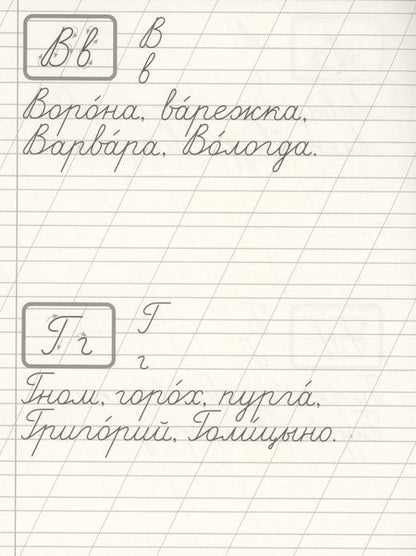 Вв В
в
Воро́на, ва́режка,
Варва́ра, Во́логда.
Гг Г
г
Гном, горо́х, пурга́,
Григо́рий, Голи́цыно.